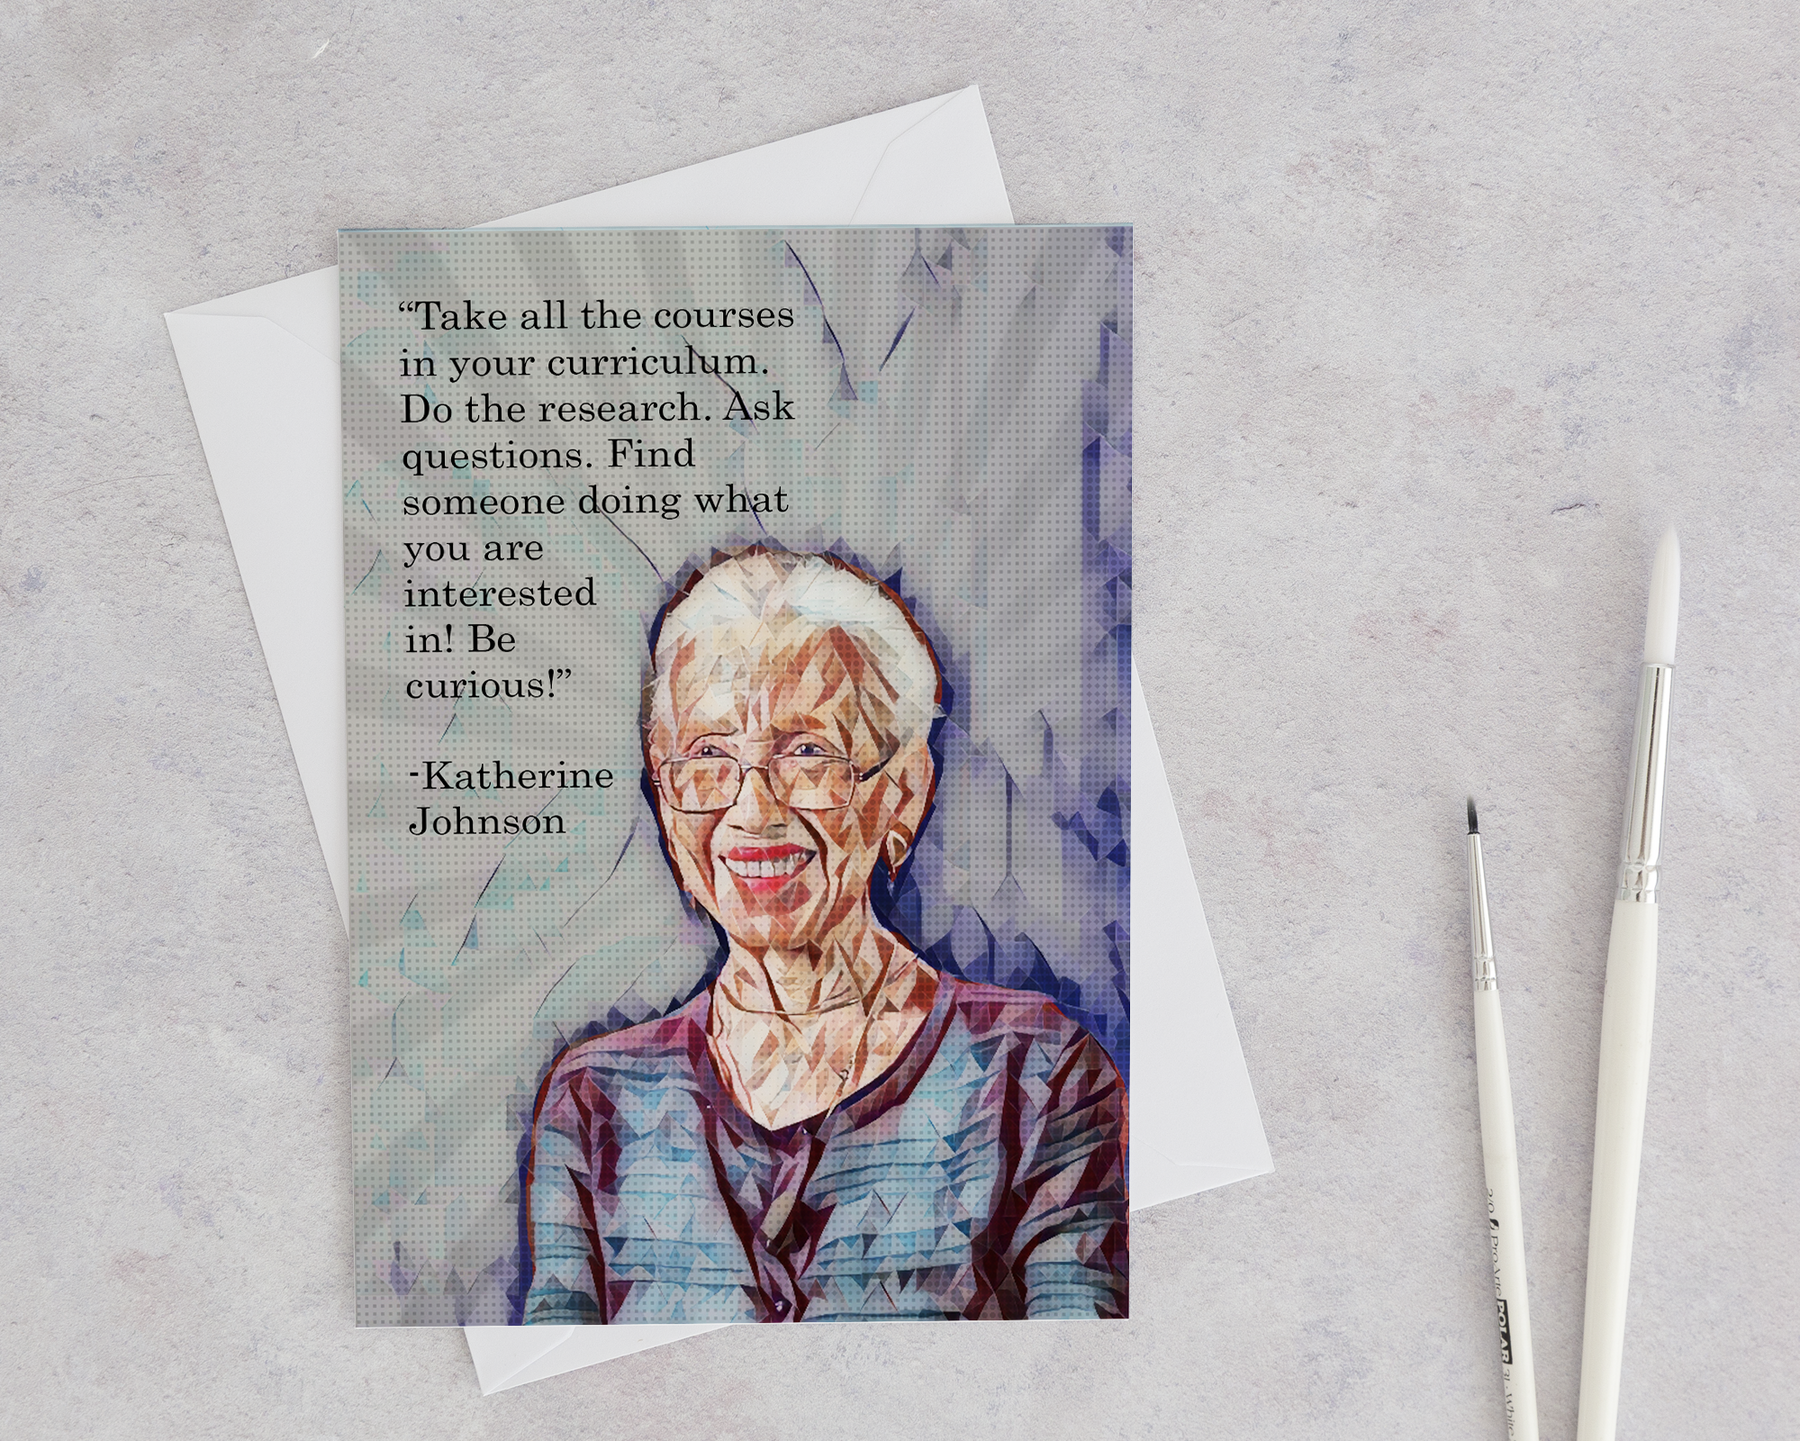 “Take all the courses
in your curriculum.
Do the research. Ask
questions. Find
someone doing what
you are
interested
in! Be
curious!”
-Katherine
Johnson
POLAR